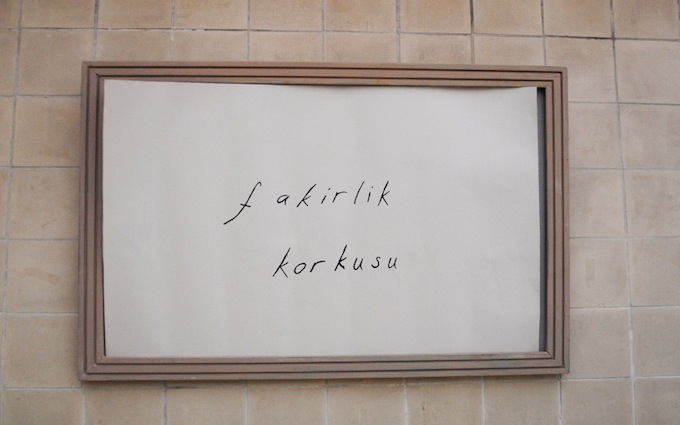 fakirlik
korkusu